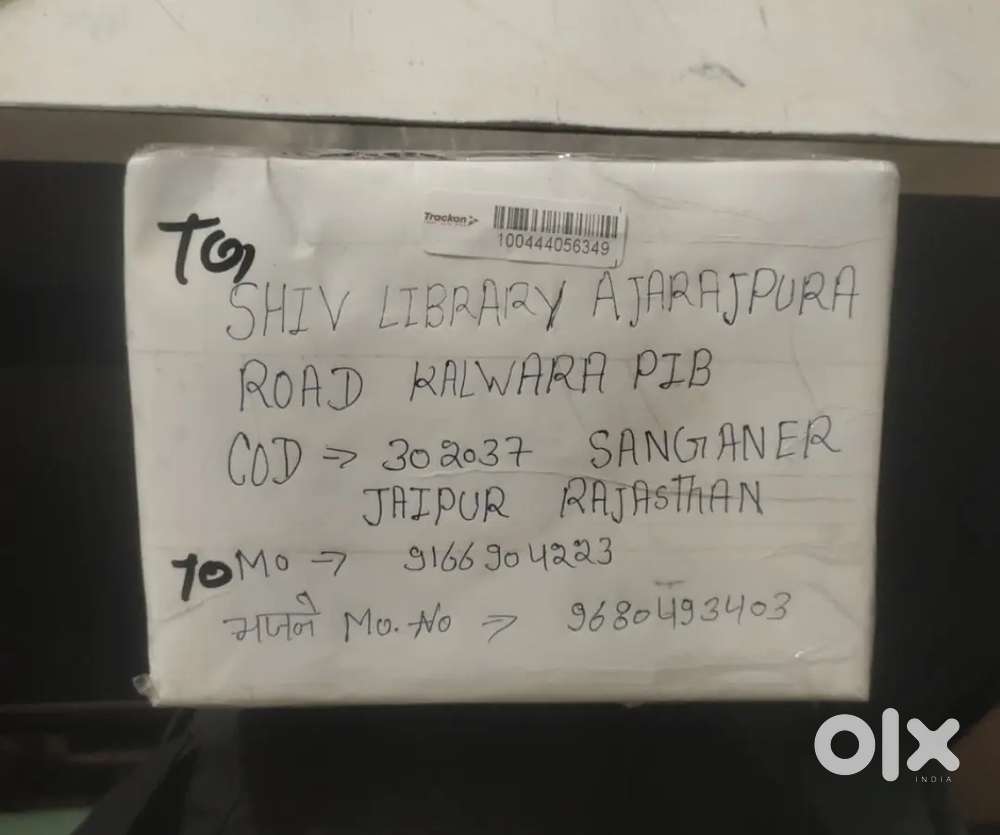 Trackon
100444056349
TO,
SHIV LIBRARY AJARAJPURA
ROAD KALWARA PIB
COD → 302037 SANGANER
JAIPUR RAJASTHAN
TO Mo → 9166904223
भजने Mo. No → 9680493403
olx
INDIA